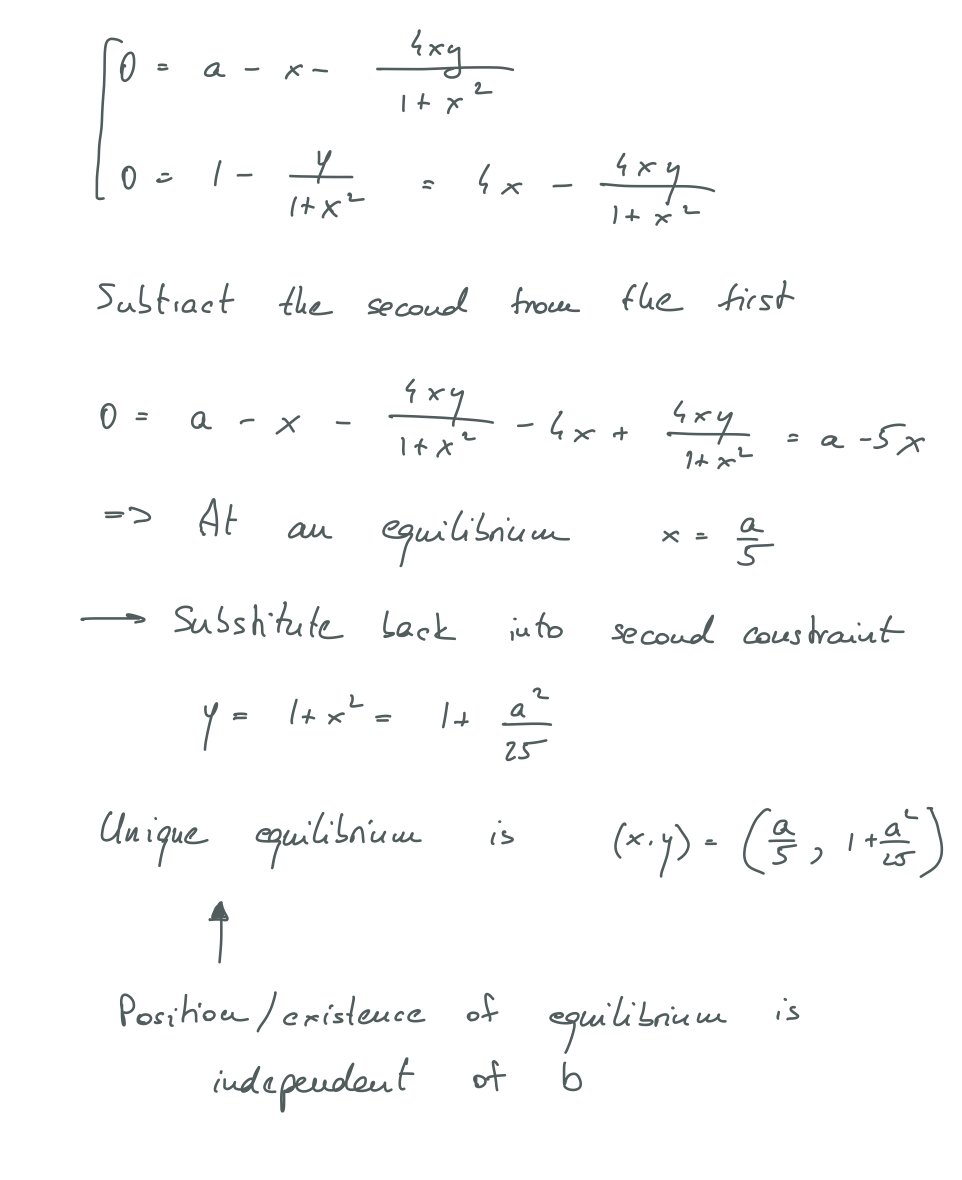 0 = a - x - \frac{4xy}{1+x^2}
0 = 1 - \frac{y}{1+x^2} = 4x - \frac{4xy}{1+x^2}
Subtract the second from the first
0 = a - x - \frac{4xy}{1+x^2} - 4x + \frac{4xy}{1+x^2} = a - 5x
=> At an equilibrium x = \frac{a}{5}
→ Substitute back into second constraint
y = 1+x^2 = 1+ \frac{a^2}{25}
Unique equilibrium is (x,y) = (\frac{a}{5}, 1+\frac{a^2}{25})
↑
Position/existence of equilibrium is
independent of b